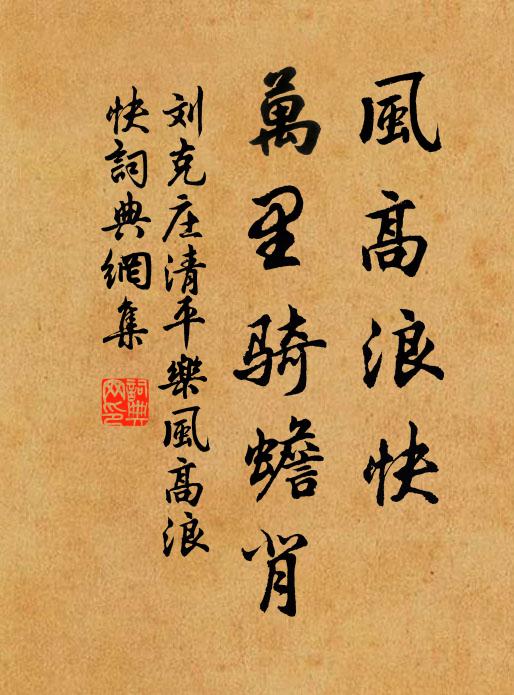 風高浪快
萬里騎蟾背
刘克庄清平樂風高浪
快詞典網集
詞典
网印